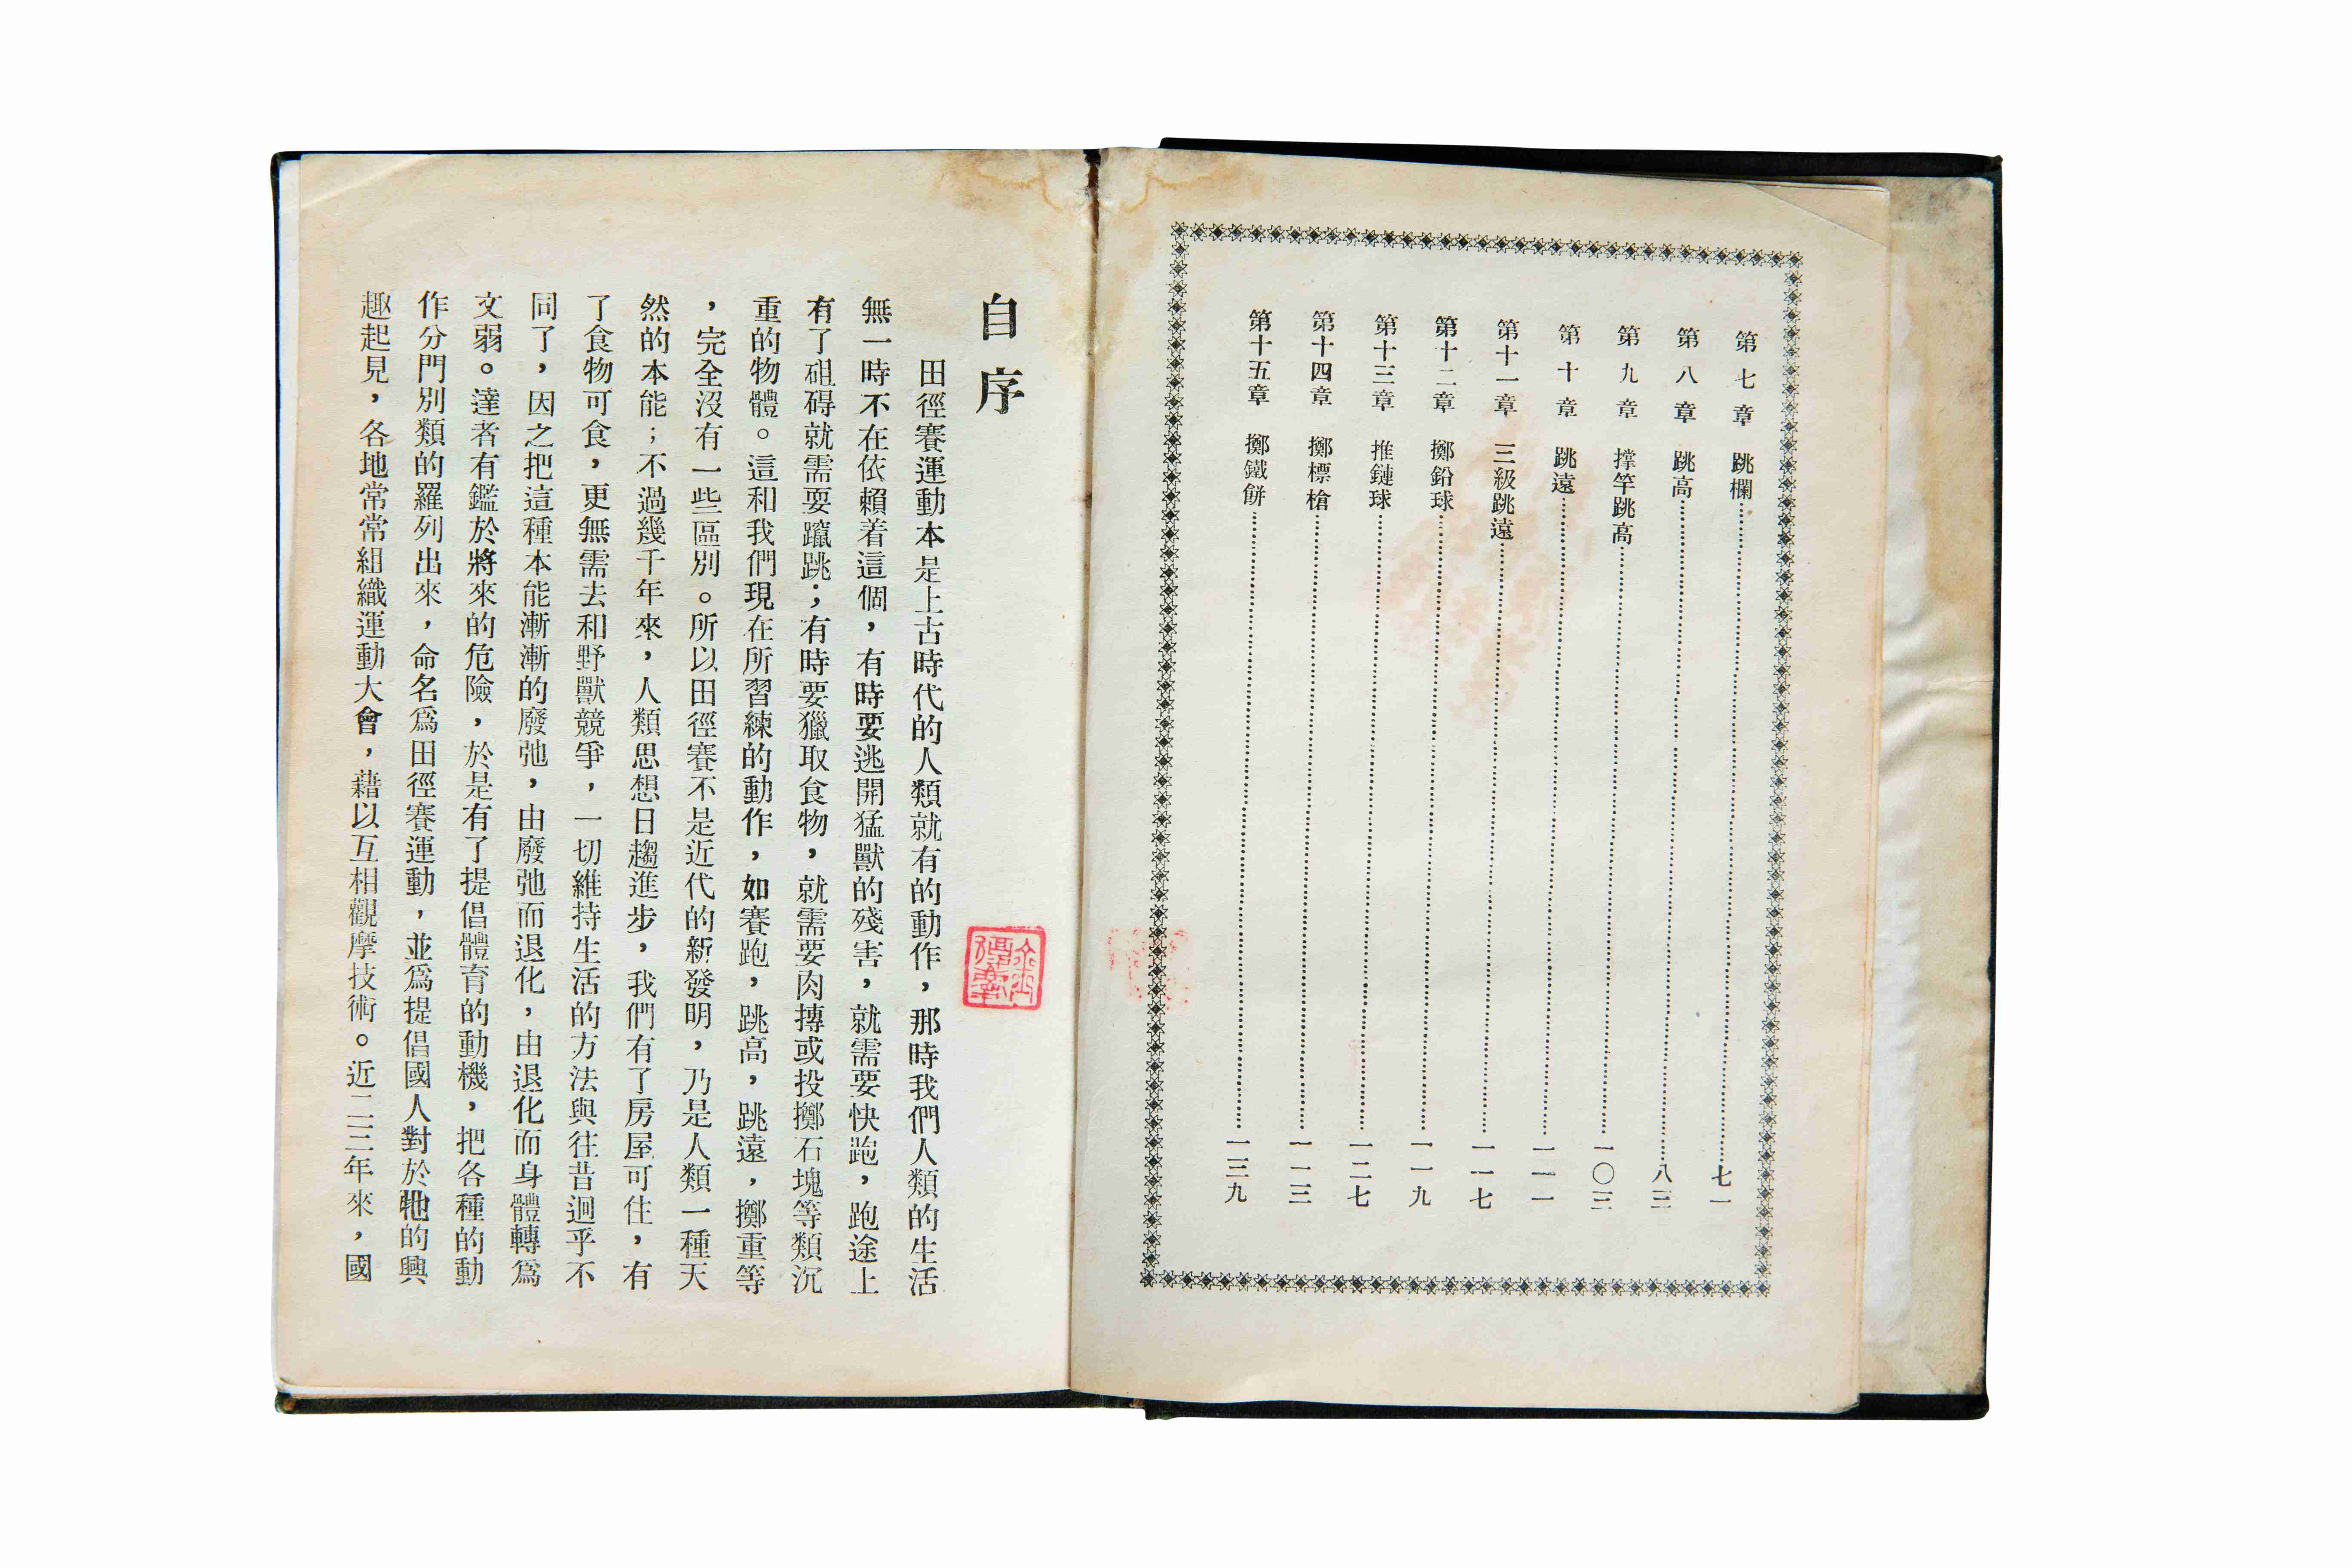 第七章　跳欄……七一
第八章　跳高……八三
第九章　撑竿跳高……一〇三
第十章　跳遠……一一一
第十一章　三級跳遠……一一七
第十二章　擲鉛球……一一九
第十三章　推鏈球……一二七
第十四章　擲標槍……一一三
第十五章　擲鐵餅……一三九
自序
田徑賽運動本是上古時代的人類就有的動作，那時我們人類的生活
無一時不在依賴着這個，有時要逃開猛獸的殘害，就需要快跑，跑途上
有了砠碍就需要躥跳；有時要獵取食物，就需要肉搏或投擲石塊等類沉
重的物體。這和我們現在所習練的動作，如賽跑，跳高，跳遠，擲重等
，完全沒有一些區別。所以田徑賽不是近代的新發明，乃是人類一種天
然的本能；不過幾千年來，人類思想日趨進步，我們有了房屋可住，有
了食物可食，更無需去和野獸競爭，一切維持生活的方法與往昔迥乎不
同了，因之把這種本能漸漸的廢弛，由廢弛而退化，由退化而身體轉爲
文弱。達者有鑑於將來的危險，於是有了提倡體育的動機，把各種的動
作分門別類的羅列出來，命名爲田徑賽運動，並爲提倡國人對於牠的興
趣起見，各地常常組織運動大會，藉以互相觀摩技術。近二三年來，國